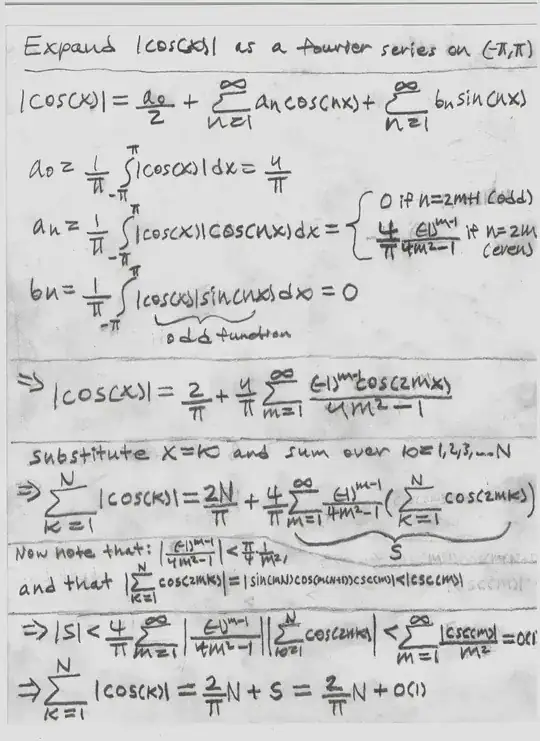 Expand |cos(x)| as a fourier series on (-π,π)
|cos(x)| = a₀/2 + ∞∑n=1 aₙcos(nx) + ∞∑n=1 bₙsin(nx)
a₀ = 1/π π∫-π |cos(x)|dx = 4/π
aₙ = 1/π π∫-π |cos(x)|cos(nx)dx = { 0 if n=2m+1 (odd)
4/π (-1)^(m-1)/(4m²-1) if n=2m (even)
bₙ = 1/π π∫-π |cos(x)|sin(nx)dx = 0
odd function
⇒ |cos(x)| = 2/π + 4/π ∞∑m=1 (-1)^(m-1)cos(2mx)/(4m²-1)
substitute x=k and sum over k=1,2,3,...N
⇒ N∑k=1 |cos(k)| = 2N/π + 4/π ∞∑m=1 (-1)^(m-1)/(4m²-1) (N∑k=1 cos(2mk))
S
Now note that: |(-1)^(m-1)/(4m²-1)| < π/4 1/m²,
and that |N∑k=1 cos(2mk)| = |sin(mN)cos(m(N+1))csc(m)| < |csc(m)|
⇒ |S| < 4/π ∞∑m=1 |(-1)^(m-1)/(4m²-1)| |N∑k=1 cos(2mk)| < ∞∑m=1 |csc(m)|/m² = O(1)
⇒ N∑k=1 |cos(k)| = 2/π N + S = 2/π N + O(1)